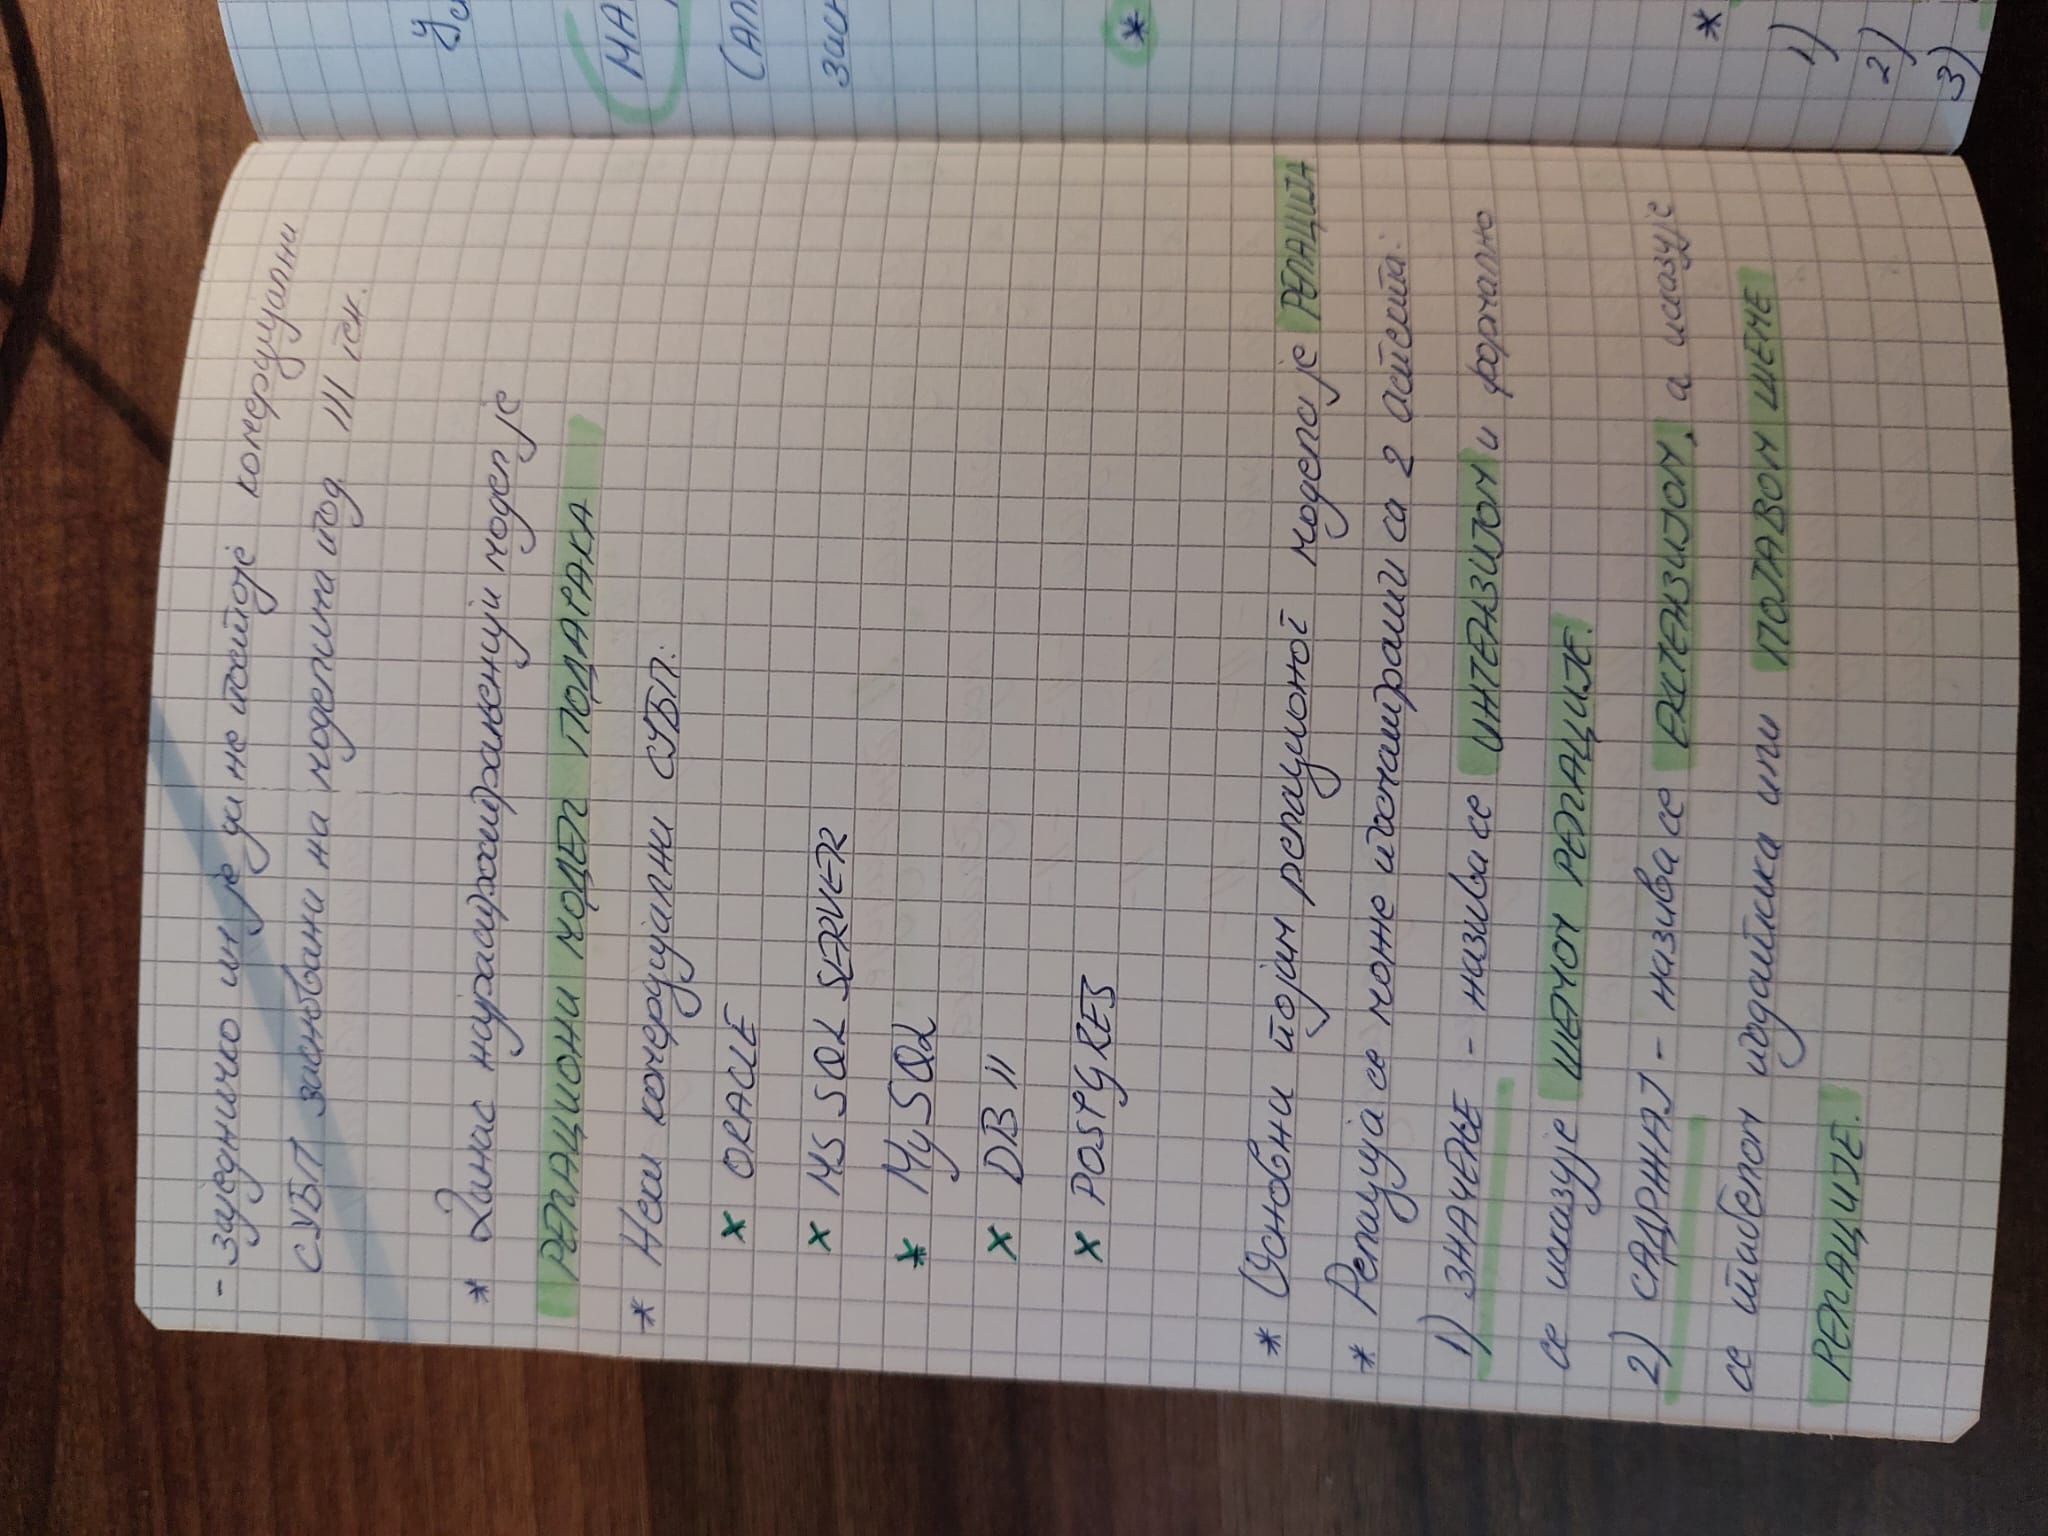 - заједничко им је да не постоје комерцијални
СУБП засновани на моделима под III ген.
* Данас најраспрострањенији модел је
РЕЛАЦИОНИ МОДЕЛ ПОДАТАКА
* Неки комерцијални СУБП:
x ORACLE
x MS SQL SERVER
* MySQL
x DB II
x POSTGRES
* Основни појам релационог модела је РЕЛАЦИЈА
* Релација се може посматрати са 2 аспекта:
1) ЗНАЧЕЊЕ - назива се ИНТЕНЗИЈОМ и формално
се исказује ШЕМОМ РЕЛАЦИЈЕ.
2) САДРЖАЈ - назива се ЕКСТЕНЗИЈОМ, а исказује
се табелом података или ПОЈАВОМ ШЕМЕ
РЕЛАЦИЈЕ.
*
*
1)
2)
3)